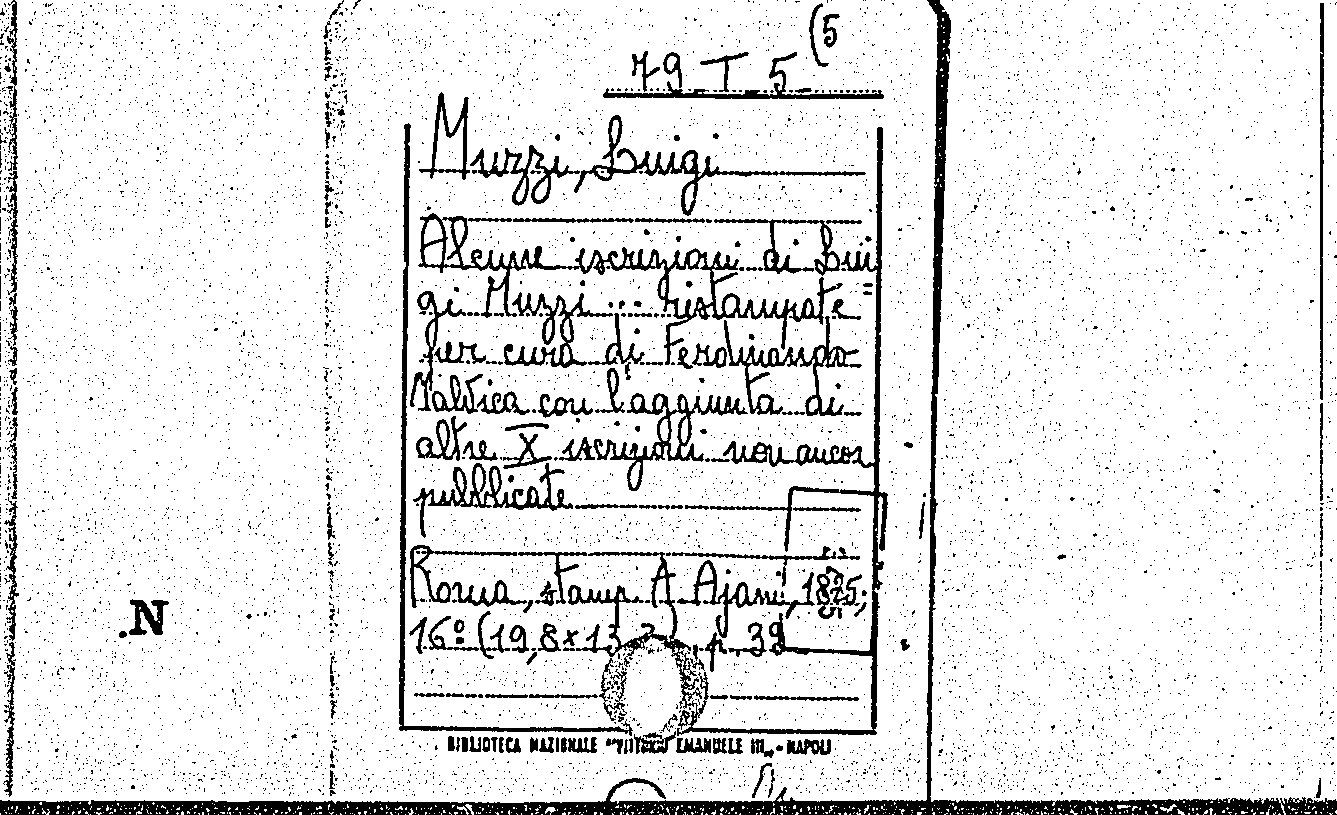 79_T_5_(5
Muzzi, Luigi
Alcune iscrizioni di Lui=
gi Muzzi ... ristampate
per cura di Ferdinando
con l'aggiunta di
altre X iscrizioni non ancor
pubblicate
Roma, stamp. A. Ajani, 1825;
16º (19,8x13,2), p. 39
.N
BIBLIOTECA NAZIONALE "VITTORIO EMANUELE III" - NAPOLI